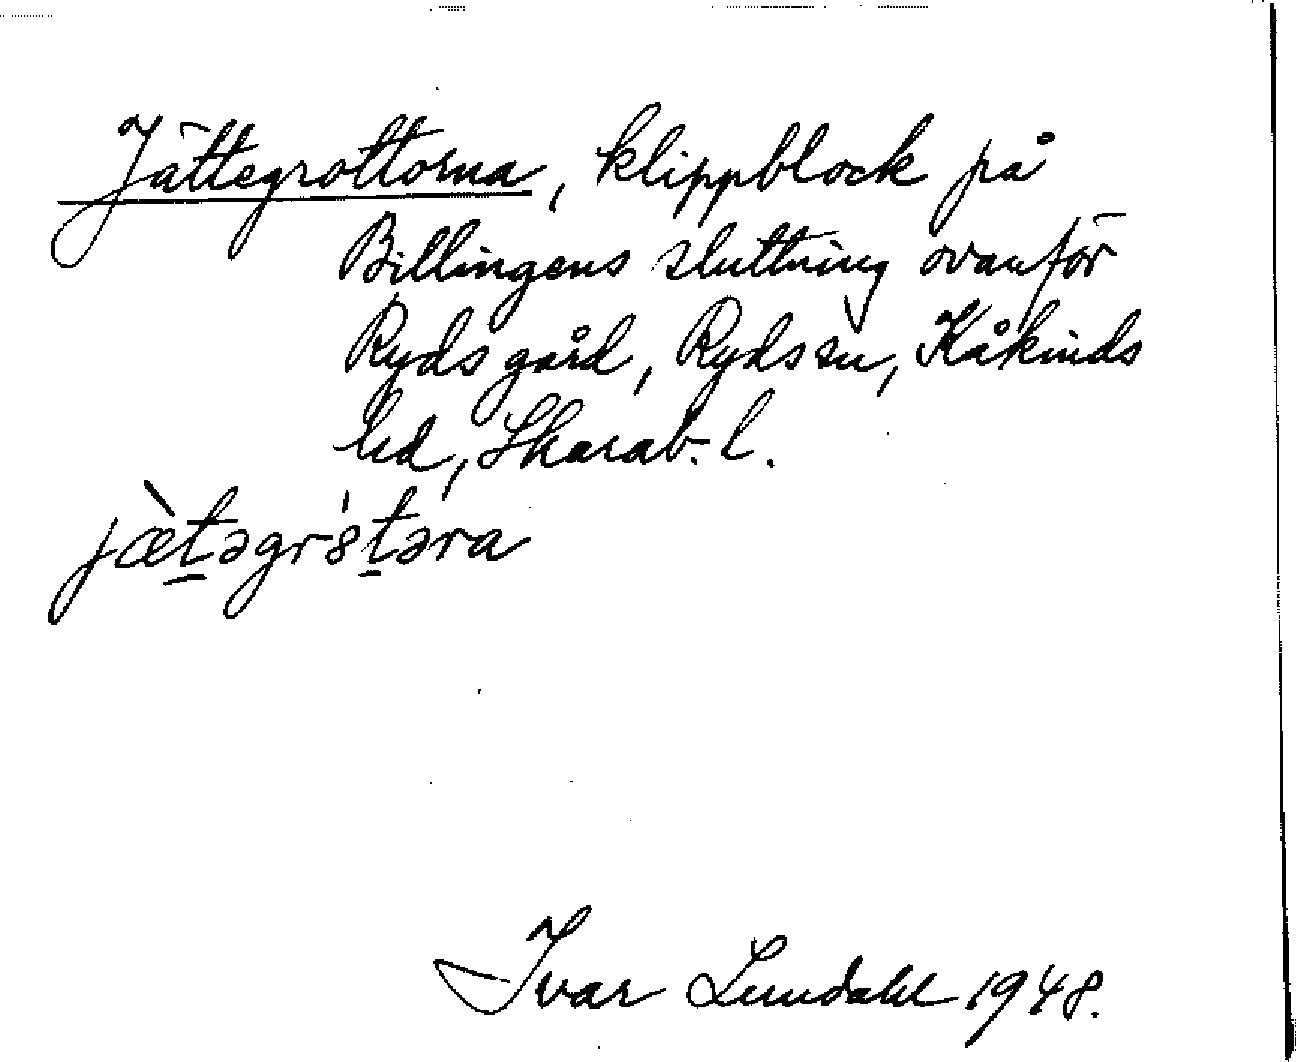 Jättegrottorna, klippblock på
Billingens sluttning ovanför
Ryds gård, Ryds sn, Kåkinds
hd, Skarab. l.
jæ̀t̲əgr8̍t̲əra
Ivar Lundahl 1948.